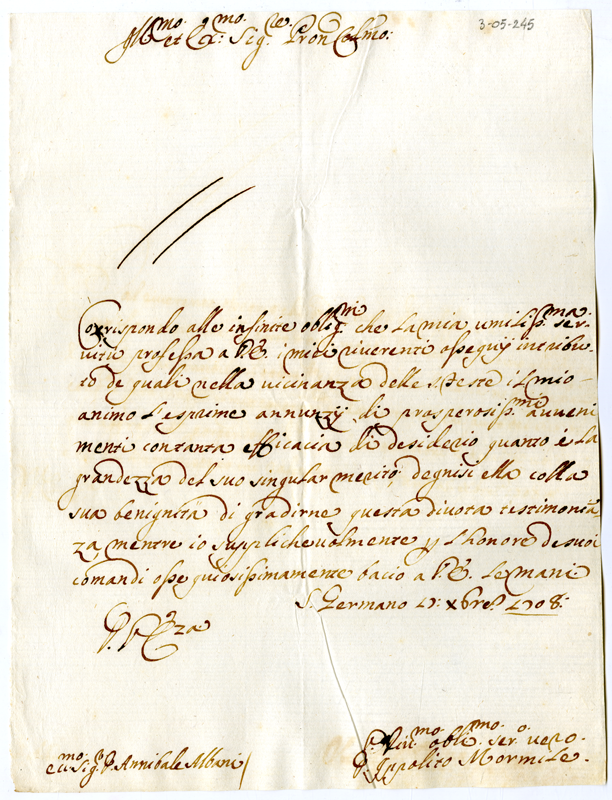 3-05-245
Ill.mo et Ecc.mo Sig.re Pron Colmo:
Corrispondo alle infinite oblig.ni che la mia umiliss.ma ser-
vitù professa a V.E. i miei riverenti ossequij in tribu-
to de quali nella vicinanza delle s. feste il mio
animo l'esprime annunzij di prosperosiss.mi avveni
menti con tanta efficacia di desiderio quanto è la
grandezza del suo singular merito; degnisi ella colla
sua benignità di gradirne questa divota testimonian
za, mentre io supplichevolmente p l'honore de suoi
comandi ossequiosissimamente bacio a V.E. le mani
S. Germano 17: Xbre. 1708:
Annibale Albani
obl.mo ser.o vero
Ippolito Mormile.